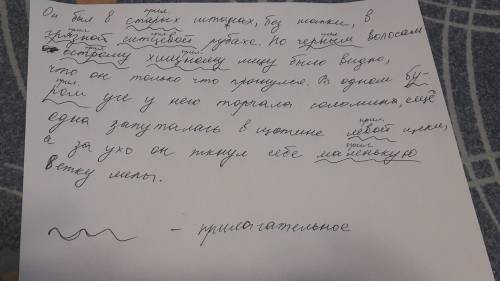 Он был в старых штанах, без шапки, в
грязной ситцевой рубахе. По черным волосам
острому хищному лицу было видно,
что он только что проснулся. В одном бу-
ром усе у него торчала соломина, ещё
одна запуталась в щетине левой щеки,
а за ухо он ткнул себе маленькую
ветку липы.
— прилагательное